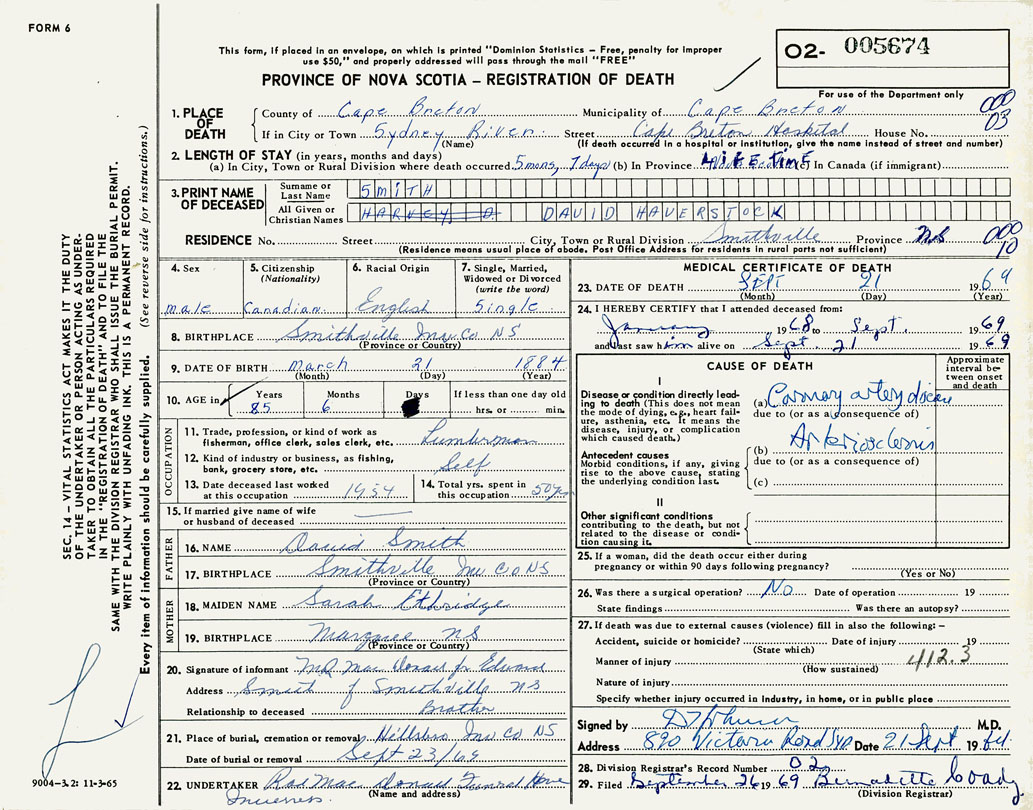 FORM 6
This form, if placed in an envelope, on which is printed "Dominion Statistics – Free, penalty for improper
use $50," and properly addressed will pass through the mail "FREE"
PROVINCE OF NOVA SCOTIA – REGISTRATION OF DEATH
02- 005674
For use of the Department only
SEC. 14 – VITAL STATISTICS ACT MAKES IT THE DUTY
OF THE UNDERTAKER OR PERSON ACTING AS UNDER-
TAKER TO OBTAIN ALL THE PARTICULARS REQUIRED
IN THE "REGISTRATION OF DEATH" AND TO FILE THE
SAME WITH THE DIVISION REGISTRAR WHO SHALL ISSUE THE BURIAL PERMIT.
WRITE PLAINLY WITH UNFADING INK. THIS IS A PERMANENT RECORD.
Every item of information should be carefully supplied. (See reverse side for instructions.)
1. PLACE OF DEATH
County of Cape Breton Municipality of Cape Breton 000
If in City or Town Sydney River Street Cape Breton Hospital House No. 03
(Name) (If death occurred in a hospital or institution, give the name instead of street and number)
2. LENGTH OF STAY (in years, months and days)
(a) In City, Town or Rural Division where death occurred 5 mons, 7 days (b) In Province LIFE TIME (c) In Canada (if immigrant)
3. PRINT NAME OF DECEASED
Surname or Last Name SMITH
All Given or Christian Names HARVEY D. DAVID HAVERSTOCK
RESIDENCE No. Street City, Town or Rural Division Smithville Province NS 000
(Residence means usual place of abode. Post Office Address for residents in rural parts not sufficient) 10
4. Sex
male
5. Citizenship
(Nationality)
Canadian
6. Racial Origin
English
7. Single, Married,
Widowed or Divorced
(write the word)
Single
8. BIRTHPLACE Smithville Inv Co NS
(Province or Country)
9. DATE OF BIRTH March 21 1884
(Month) (Day) (Year)
10. AGE in Years Months Days If less than one day old
85 6 hrs. or min.
OCCUPATION
11. Trade, profession, or kind of work as
fisherman, office clerk, sales clerk, etc. Lumberman
12. Kind of industry or business, as fishing,
bank, grocery store, etc. Self
13. Date deceased last worked
at this occupation 1954
14. Total yrs. spent in
this occupation 50 yrs
15. If married give name of wife
or husband of deceased
FATHER
16. NAME David Smith
17. BIRTHPLACE Smithville Inv Co NS
(Province or Country)
MOTHER
18. MAIDEN NAME Sarah Ethridge
19. BIRTHPLACE Margaree NS
(Province or Country)
20. Signature of informant Mac Donald for Edward
Address Smith of Smithville NS
Relationship to deceased Brother
21. Place of burial, cremation or removal Hillsboro Inv Co NS
Date of burial or removal Sept 23/69
22. UNDERTAKER Rod Mac Donald Funeral Home
(Name and address)
Inverness
9004-3.2: 11-3-65
MEDICAL CERTIFICATE OF DEATH
23. DATE OF DEATH SEPT 21 1969
(Month) (Day) (Year)
24. I HEREBY CERTIFY that I attended deceased from:
January 1968 to Sept. 1969
and last saw him alive on Sept. 21 1969
CAUSE OF DEATH
Approximate
interval be-
tween onset
and death
I
Disease or condition directly lead-
ing to death (This does not mean
the mode of dying, e.g., heart fail-
ure, asthenia, etc. It means the
disease, injury, or complication
which caused death.)
(a) Coronary artery disease
due to (or as a consequence of)
Antecedent causes
Morbid conditions, if any, giving
rise to the above cause, stating
the underlying condition last.
(b) Arteriosclerosis
due to (or as a consequence of)
(c)
II
Other significant conditions
contributing to the death, but not
related to the disease or condi-
tion causing it.
25. If a woman, did the death occur either during
pregnancy or within 90 days following pregnancy?
(Yes or No)
26. Was there a surgical operation? No Date of operation 19
State findings Was there an autopsy?
27. If death was due to external causes (violence) fill in also the following: –
Accident, suicide or homicide? Date of injury 19
(State which)
Manner of injury 412.3
(How sustained)
Nature of injury
Specify whether injury occurred in Industry, in home, or in public place
Signed by M.D.
Address 890 Victoria Road Syd Date 21 Sept 1969
28. Division Registrar's Record Number 02
29. Filed September 26 1969 Bernadette Coady
(Division Registrar)